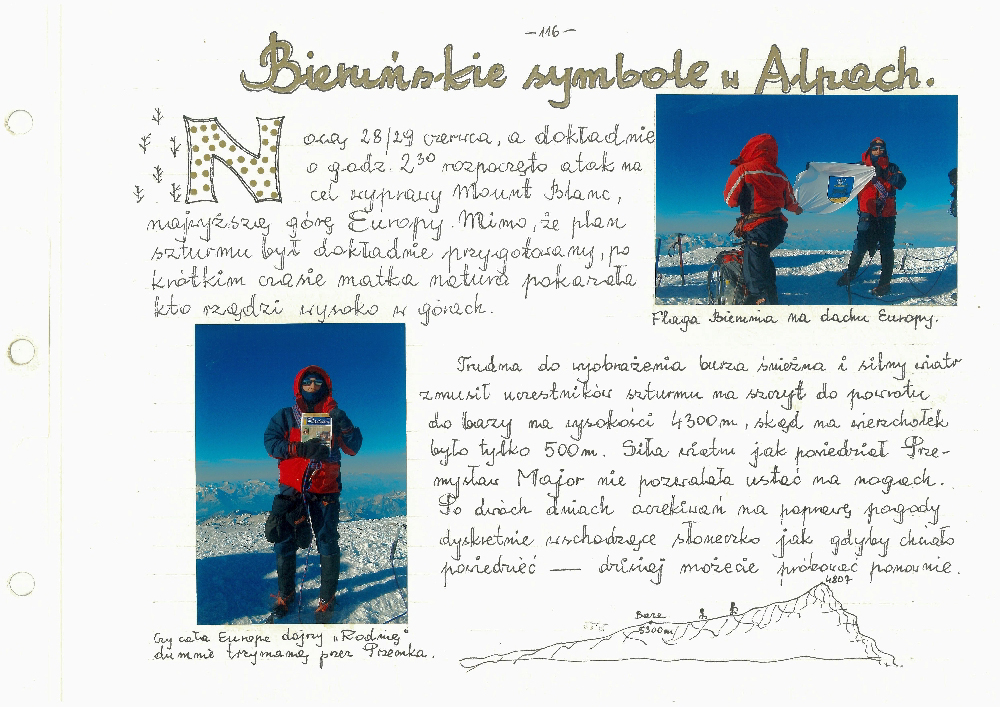 -116-
Bieruńskie symbole w Alpach.
Nocą 28/29 czerwca, a dokładnie
o godz. 2³⁰ rozpoczęto atak na
cel wyprawy Mount Blanc,
najwyższą górę Europy. Mimo, że plan
szturmu był dokładnie przygotowany, po
krótkim czasie matka natura pokazała
kto rządzi wysoko w górach.
Flaga Bierunia na dachu Europy.
Trudna do wyobrażenia burza śnieżna i silny wiatr
zmusił uczestników szturmu na szczyt do powrotu
do bazy na wysokości 4300m, skąd na wierzchołek
było tylko 500m. Siła wiatru jak powiedział Prze-
mysław Major nie pozwalała ustać na nogach.
Po dwóch dniach oczekiwań na poprawę pogody
dyskretnie wschodzące słoneczko jak gdyby chciało
powiedzieć — dzisiaj możecie próbować ponownie.
4807
Baza
4300m
Czy cała Europa dojrzy „Rodnię"
dumnie trzymaną przez Przemka.